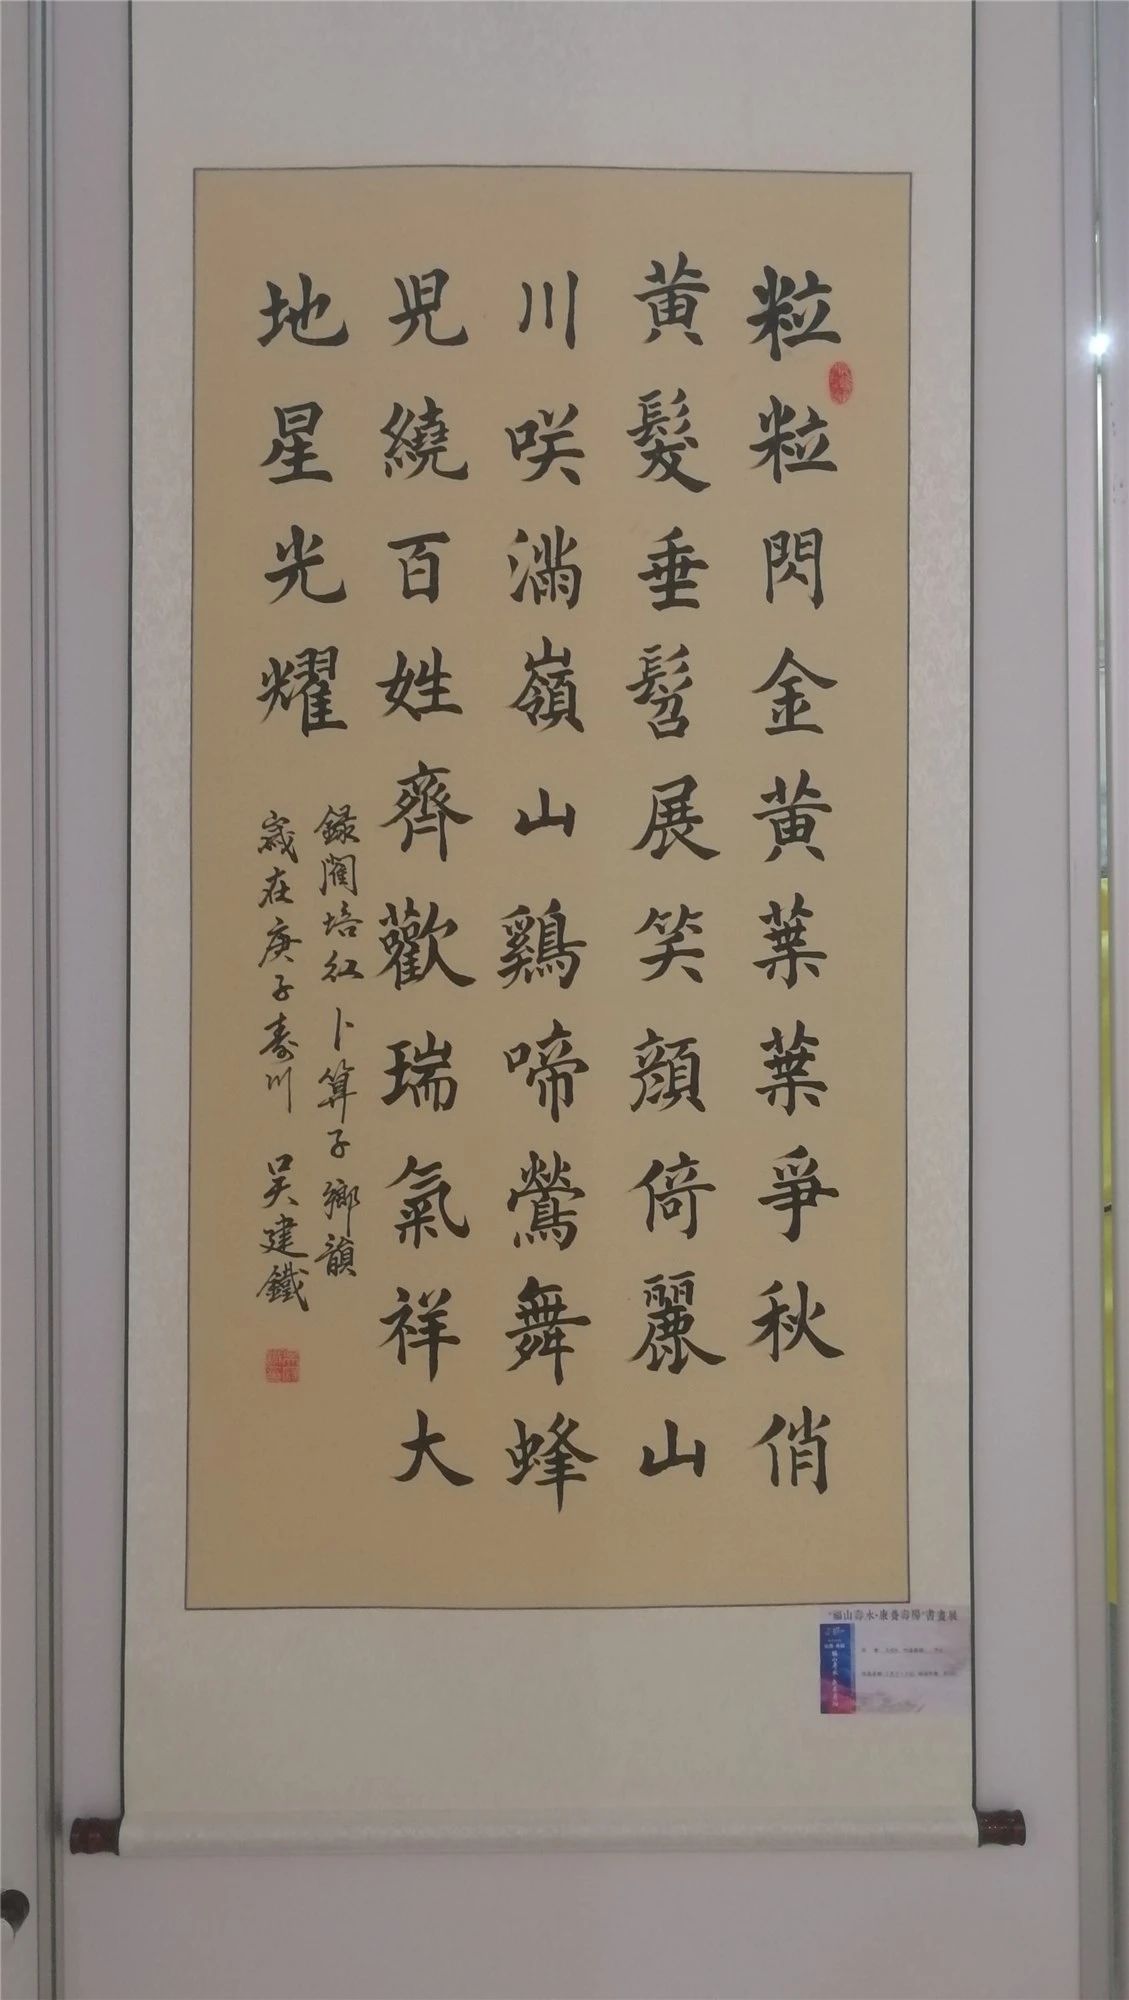 粒粒閃金黄葉葉爭秋俏
黄髮垂髫展笑顔倚麗山
川咲滿嶺山鷄啼鶯舞蜂
児繞百姓齊歡瑞氣祥大
地星光耀
録閣培紅卜算子鄉韻
歲在庚子壽川吴建鐵
"福山壽水·康養壽陽"書畫展